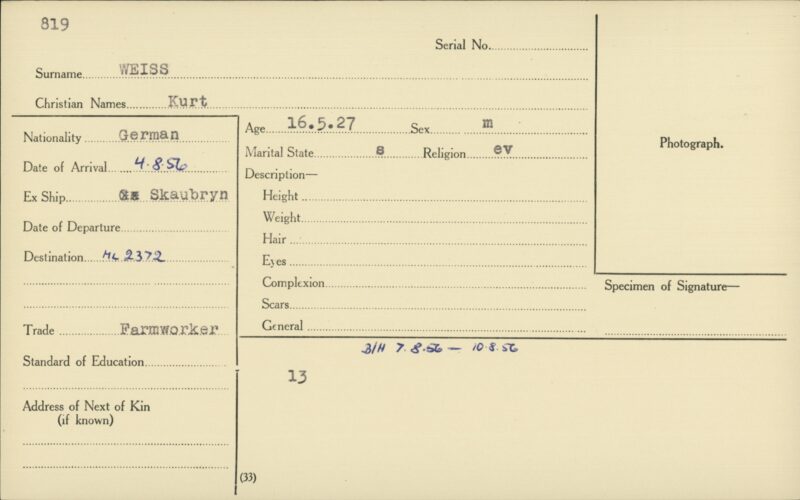 819
Serial No.
Surname WEISS
Christian Names Kurt
Nationality German
Date of Arrival 4.8.56
Ex Ship Skaubryn
Date of Departure
Destination 2372
Trade Farmworker
Standard of Education
Address of Next of Kin
(if known)
Age 16.5.27 Sex m
Marital State s Religion ev
Description—
Height
Weight
Hair
Eyes
Complexion
Scars
General
Photograph.
Specimen of Signature—
B/H 7.8.56 — 10.8.56
13
(33)